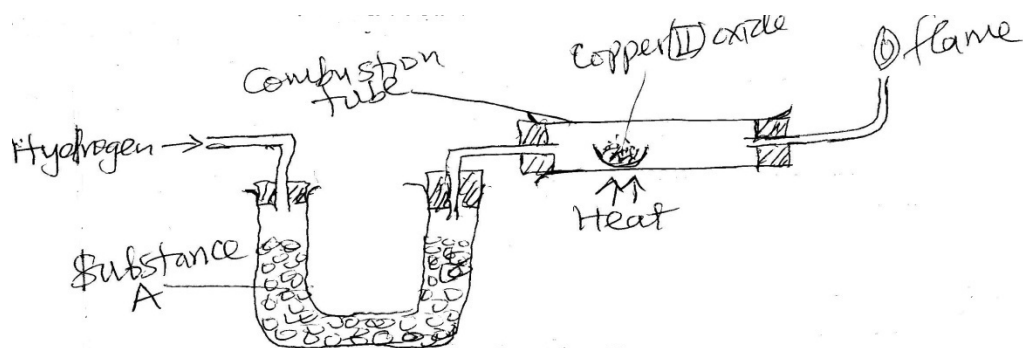 Combustion
tube
Copper(II)oxide
flame
Hydrogen
Heat
Substance
A